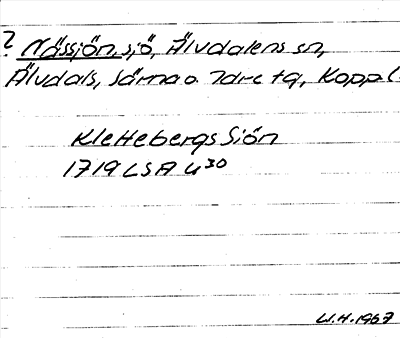 ? Nässjön, sjö, Älvdalens sn,
Älvdals, Särna o. Idre tg, Koppl.
Klettebergs Siön
1719 LSA u 30
W.H. 1967